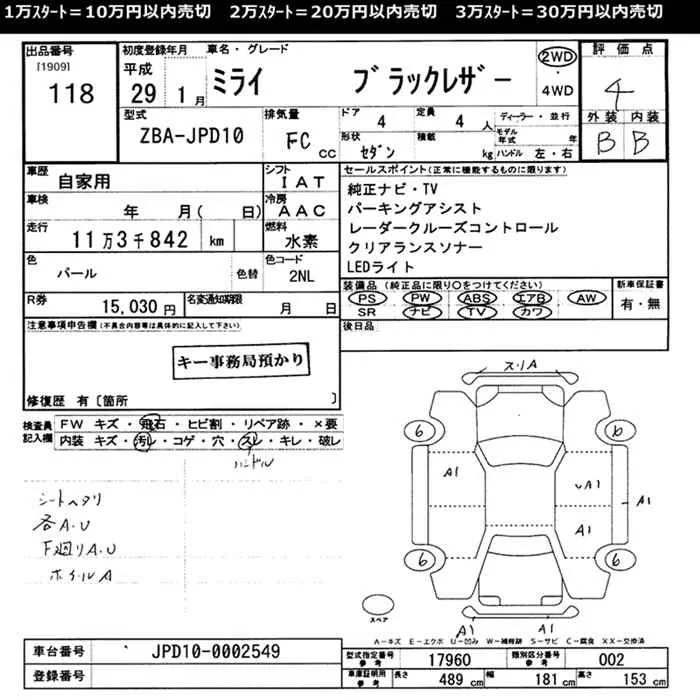 1万スタート＝10万円以内売切　2万スタート＝20万円以内売切　3万スタート＝30万円以内売切
出品番号 [1909] 118
初度登録年月 平成 29 1月
車名・グレード ミライ ブラックレザー
2WD ・ 4WD
評価点 4
外装 B 内装 B
型式 ZBA-JPD10
排気量 FC cc
ドア 4 定員 4人 ディーラー・並行
形状 セダン 積載 kg モデル年式 年 ハンドル 左・右
車歴 自家用
シフト IAT
車検 年 月( 日)
冷房 AAC
走行 11万3千842 km
燃料 水素
色 パール 色替
色コード 2NL
R券 15,030円 名変通知期限 月 日
セールスポイント(正常に機能するものに限ります)
純正ナビ・TV
パーキングアシスト
レーダークルーズコントロール
クリアランスソナー
LEDライト
装備品(純正品に限り○をつけてください)
PS PW ABS エアB AW
SR ナビ TV カワ
新車保証書 有・無
後日品
注意事項申告欄(不具合内容等は具体的に記入して下さい)
キー事務局預かり
修復歴 有〔箇所 〕
検査員記入欄
FW キズ・飛石・ヒビ割・リペア跡・×要
内装 キズ・汚レ・コゲ・穴・スレ・キレ・破レ
ハンドル
シートヘタリ
各A.U
下廻りA.U
ホイルA
スリA
6 6
A1 A1 A1
A1
6 6
A1 A1
スペア
A－キズ E－エクボ U－凹み W－補修跡 S－サビ C－腐食 XX－交換済
車台番号 JPD10-0002549
登録番号
型式指定番号参考 17960 類別区分番号参考 002
車庫証明用参考 長さ 489 cm 幅 181 cm 高さ 153 cm